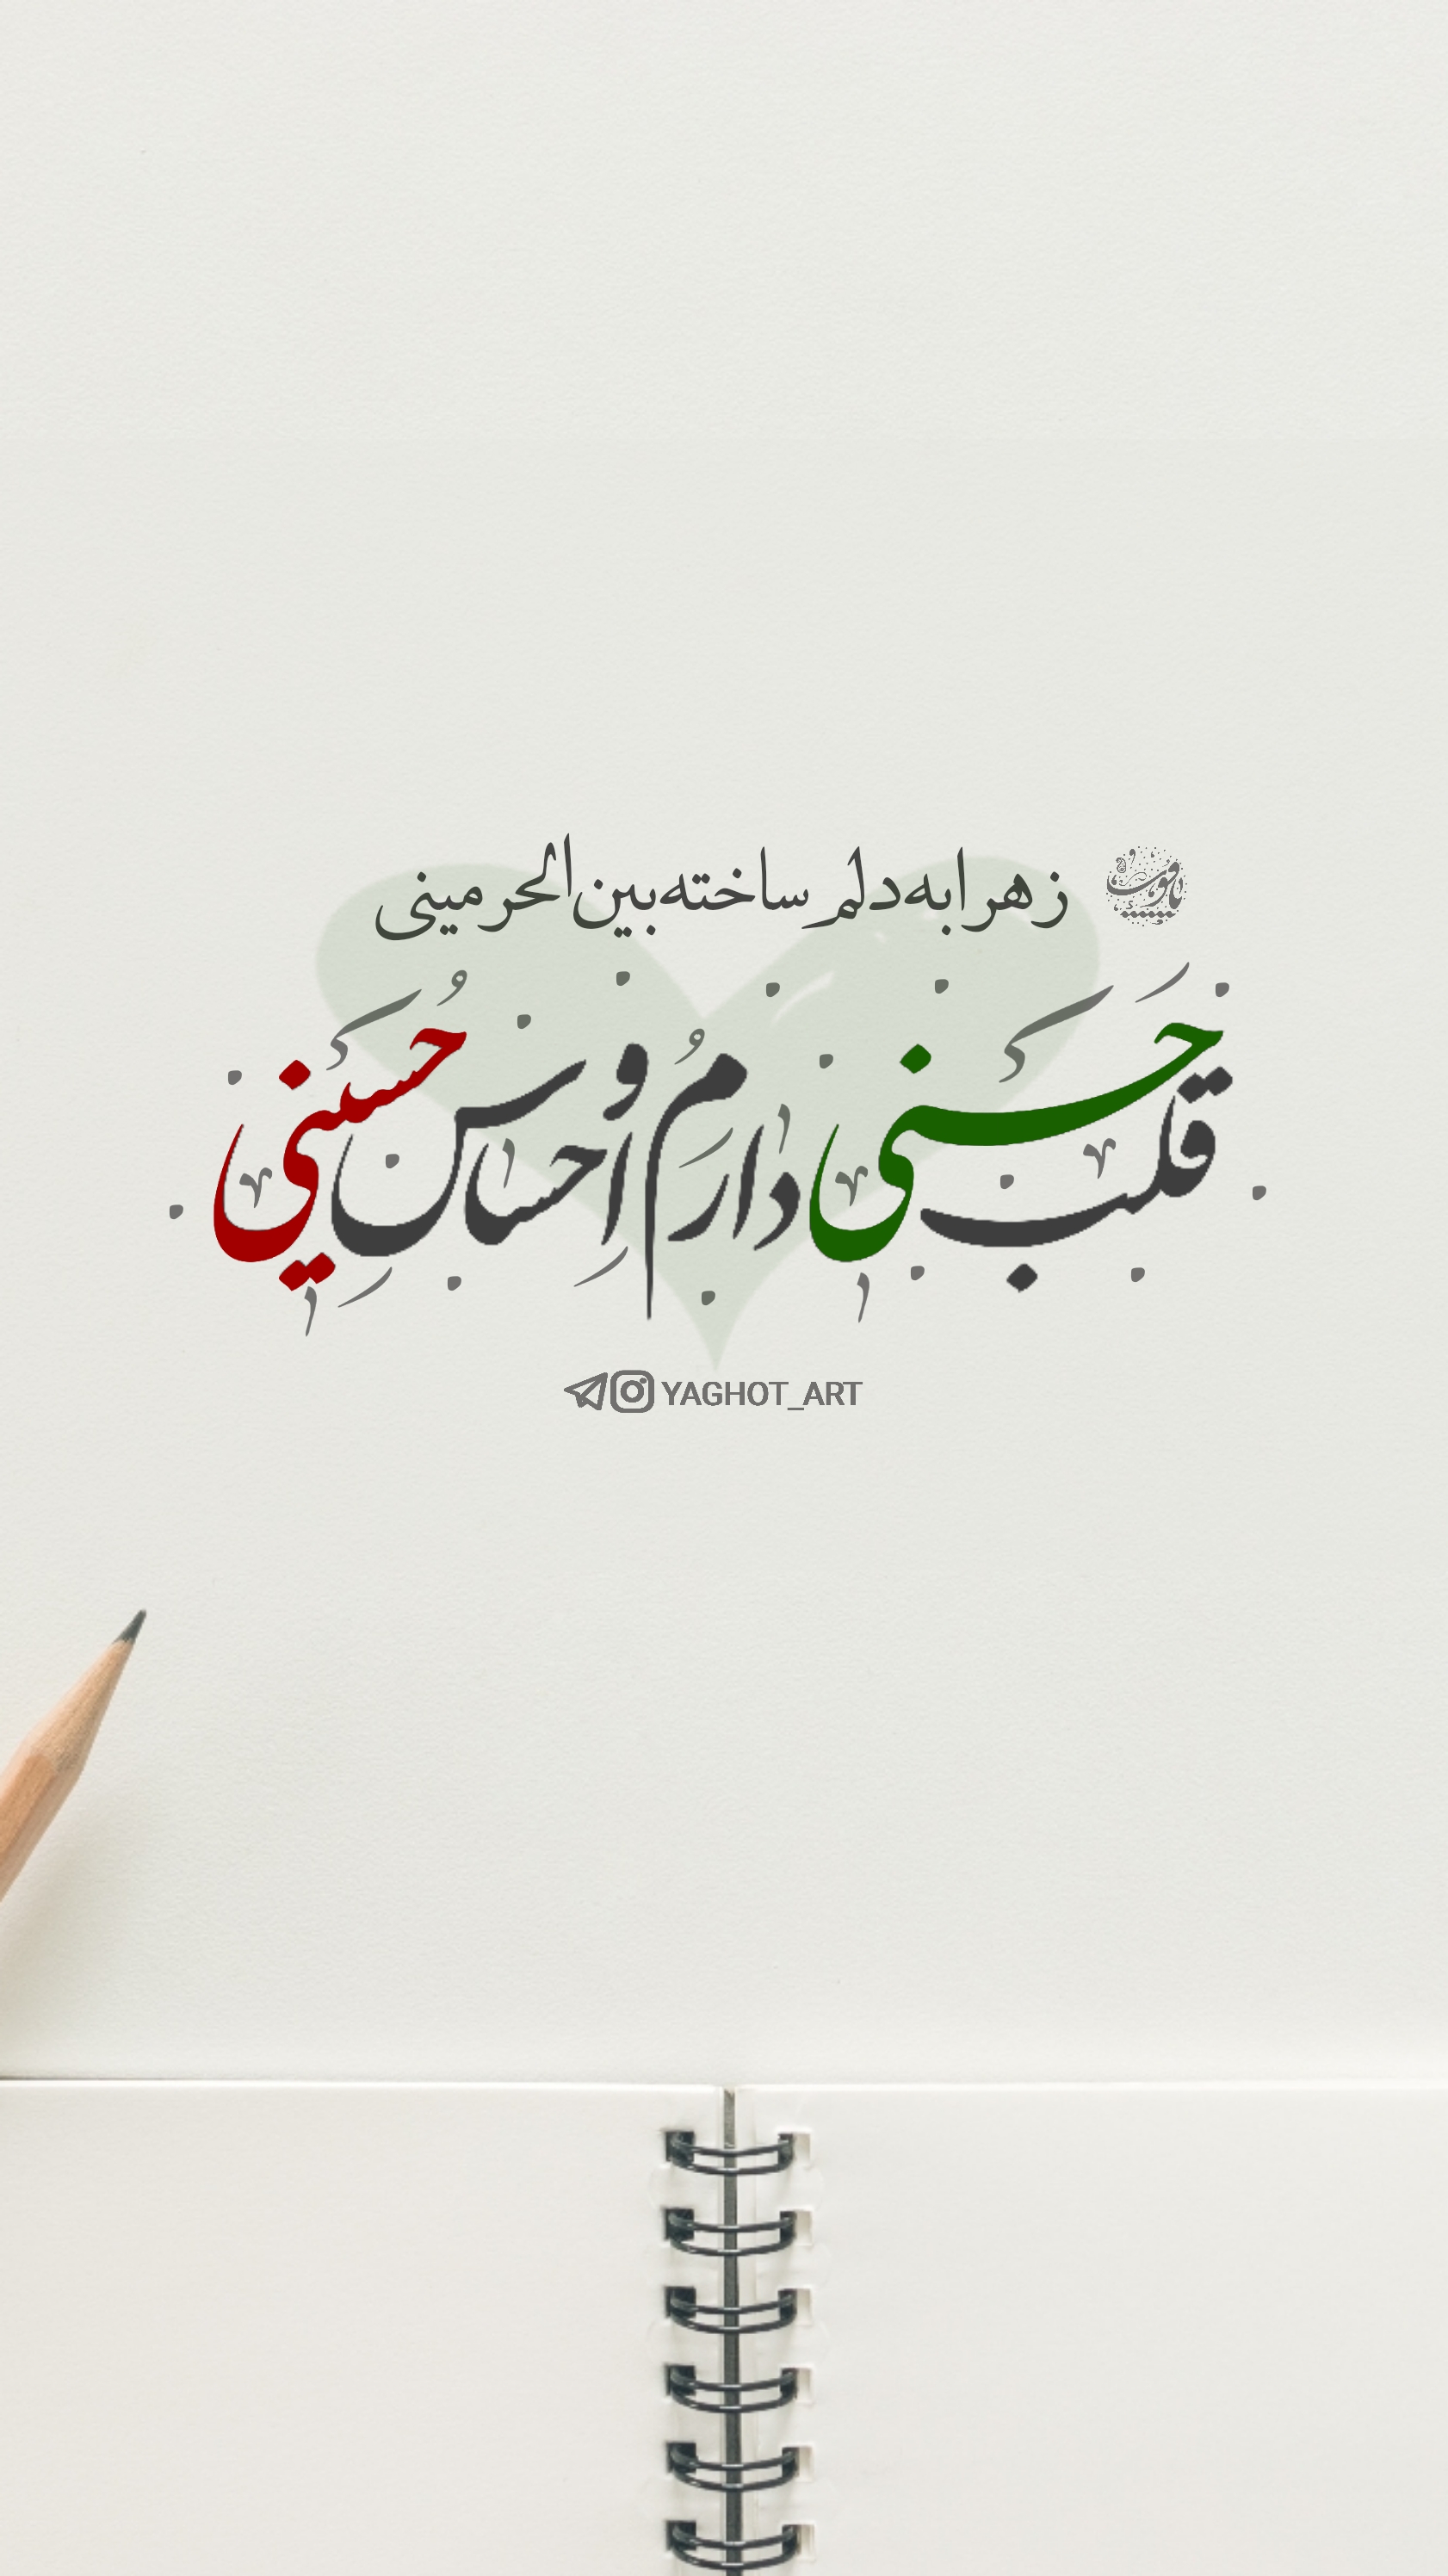 زهرا به دلم ساخته بین الحرمینی
یاقوت
قلب حسنی دارم و احساس حُسینی
YAGHOT_ART